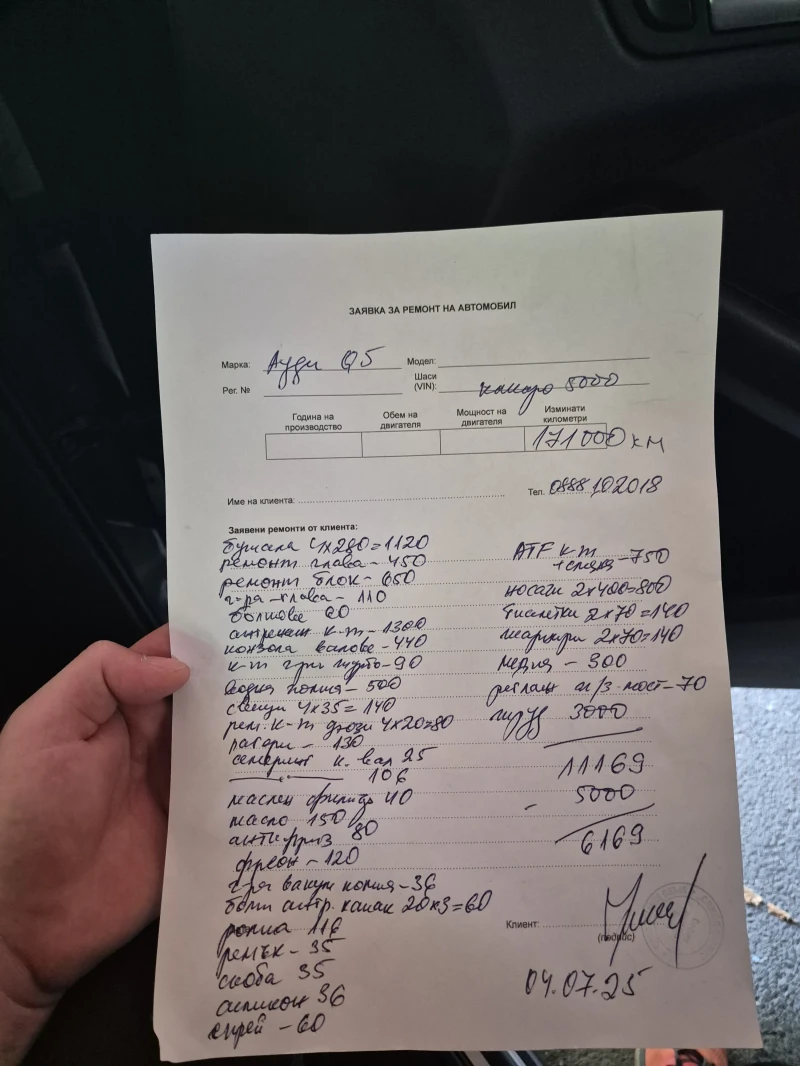 ЗАЯВКА ЗА РЕМОНТ НА АВТОМОБИЛ
Марка: Ауди Q5 Модел:
Рег. № Шаси (VIN): капаро 5000
Година на производство Обем на двигателя Мощност на двигателя Изминати километри
171000 км
Име на клиента: Тел. 0888102018
Заявени ремонти от клиента:
бутала 4x280=1120
ремонт глава - 450
ремонт блок - 650
г-ра глава - 110
болтове 80
ангренаж к-т - 1300
конзола валове - 440
к-т г-ри турбо - 90
водна помпа - 500
свещи 4x35=140
рем. к-т дюзи 4x20=80
лагери - 130
семеринг к. вал 25
106
маслен филтър 40
масло 150
антифриз 80
фреон - 120
г-ра вакум помпа - 36
болт антр. капак 20x3=60
ролка 116
ремък - 35
скоба 35
силикон 36
спрей - 60
ATF к-т - 750
носачи 2x400=800
биалетки 2x70=140
маркучи 2x70=140
медия - 300
реглаж п/з мост - 70
труд 3000
11169
- 5000
6169
Клиент:
(подпис)
04.07.25